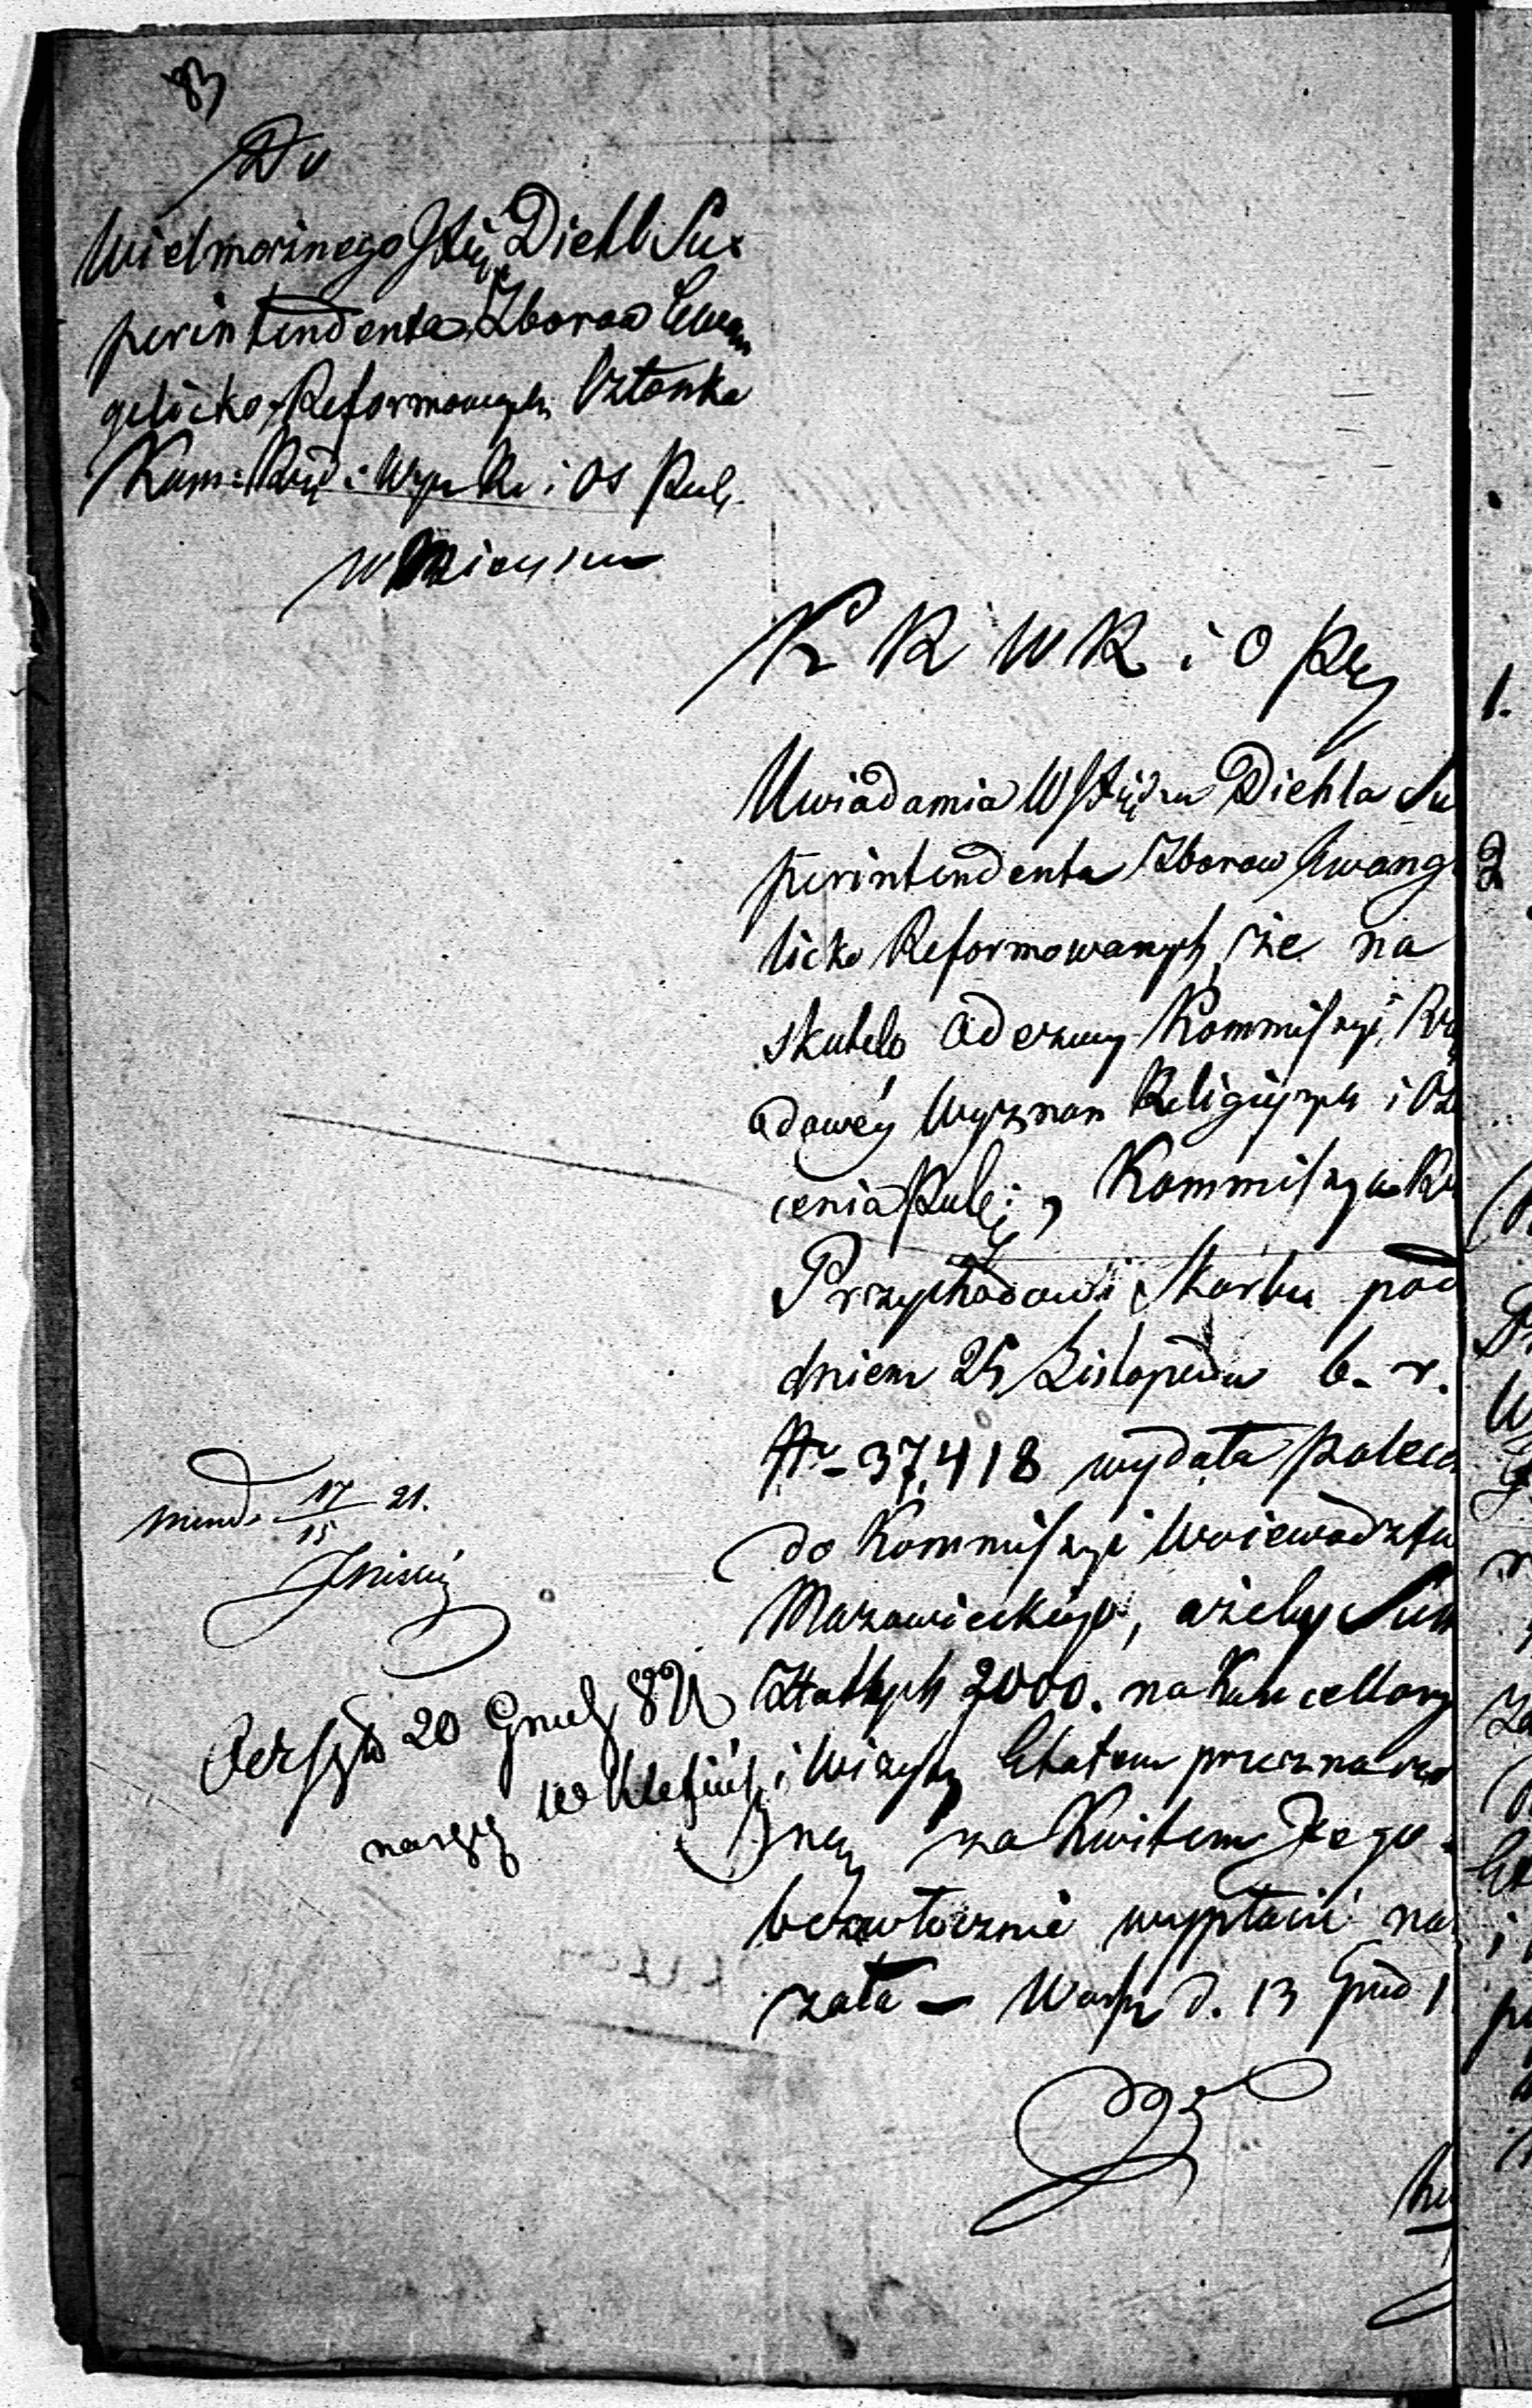 83
Do
Wielmożnego JXię. Diehl Su-
perintendenta Zborow Ewan
gelicko Reformowanych Członka
Kom: Rzą: Wyz. Re: i Os Publ.
w mieyscu
K R W R i O P
Uwiadamia WJXiędza Diehla Su
perintendenta Zborow Ewang
licko Reformowanych, że na
skutek odezwy Kommissyi Rzą
adowéy Wyznań Religiynych i Oś
cenia Publi:, Kommissya Rz
Przychodow i Skarbu pod
dniem 25 Listopada b. r.
Nr 37,418 wydała polec
do Kommissyi Woiewodztw
Mazowieckiego, ażeby Sum
Złotych 2000. na Kancellary
i Wizyty Etatem przeznaczo
ną za Kwitem Jego
bezzwłocznie wypłacić na
zała — Warsz d. 13 Grud 1
mund. 17/15 21.
20 Grud 821